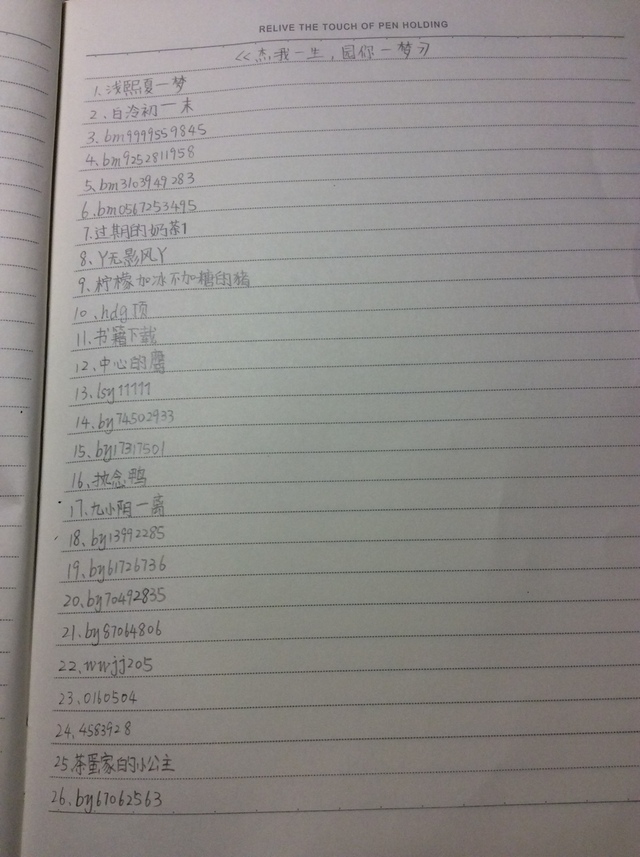 RELIVE THE TOUCH OF PEN HOLDING
<<杰我一生,圆你一梦>>
1.浅熙夏一梦
2.白泠初一末
3.bm9999559845
4.bm9252811958
5.bm3103949283
6.bm0567253495
7.过期的奶茶1
8.Y无影风Y
9.柠檬加冰不加糖的猪
10.hdg顶
11.书籍下载
12.中心的鹰
13.lsy11111
14.by74502933
15.by17317501
16.执念鸭
17.九小阴一离
18.by13992285
19.by61726736
20.by70492835
21.by87064806
22.wwjj205
23.0160504
24.4583928
25茶蛋家的小公主
26.by67062563